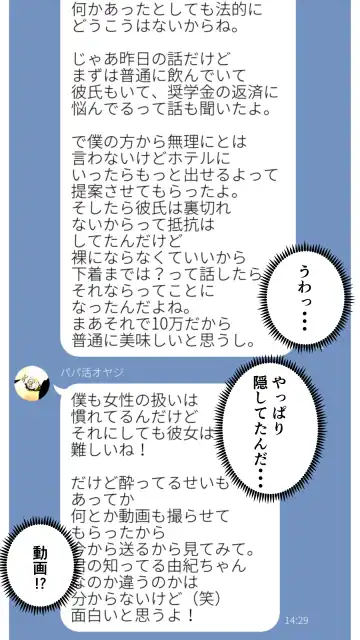 何かあったとしても法的に
どうこうはないからね。
じゃあ昨日の話だけど
まずは普通に飲んでいて
彼氏もいて、奨学金の返済に
悩んでるって話も聞いたよ。
で僕の方から無理にとは
言わないけどホテルに
いったらもっと出せるよって
提案させてもらったよ。
そしたら彼氏は裏切れ
ないからって抵抗は
してたんだけど
裸にならなくていいから
下着までは？って話したら
それならってことに
なったんだよね。
まあそれで10万だから
普通に美味しいと思うし。
うわっ・・・
パパ活オヤジ
やっぱり
隠してたんだ・・・
僕も女性の扱いは
慣れてるんだけど
それにしても彼女は
難しいね！
だけど酔ってるせいも
あってか
何とか動画も撮らせて
もらったから
今から送るから見てみて。
の知ってる由紀ちゃん
なのか違うのかは
分からないけど（笑）
面白いと思うよ！
動画!?
14:29